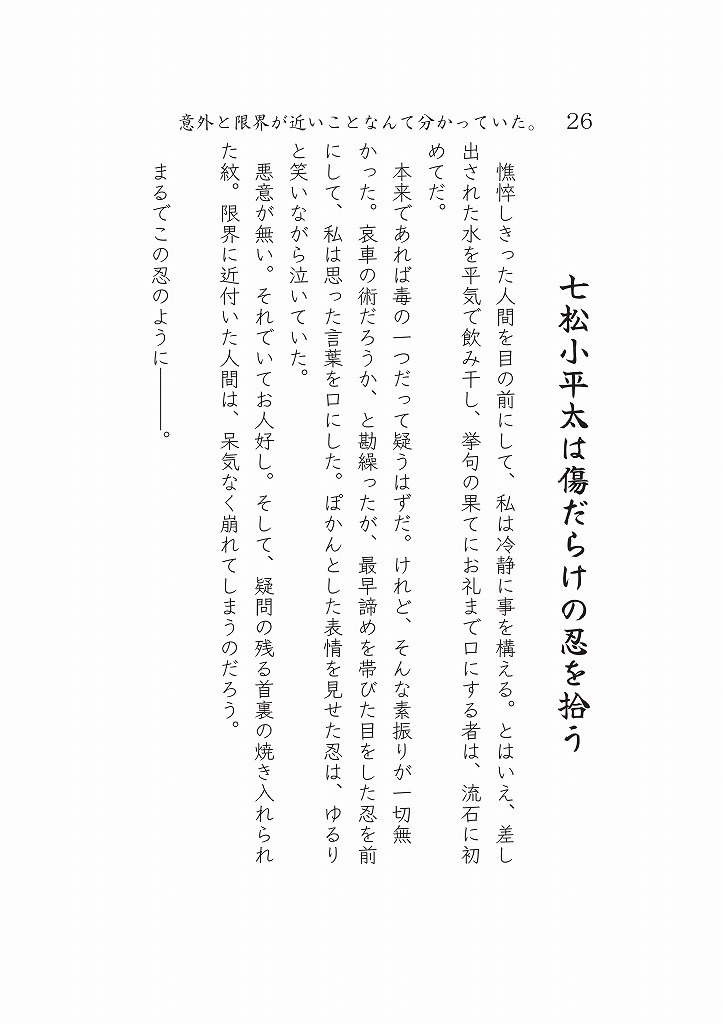 意外と限界が近いことなんて分かっていた。 26
七松小平太は傷だらけの忍を拾う
憔悴しきった人間を目の前にして、私は冷静に事を構える。とはいえ、差し
出された水を平気で飲み干し、挙句の果てにお礼まで口にする者は、流石に初
めてだ。
本来であれば毒の一つだって疑うはずだ。けれど、そんな素振りが一切無
かった。哀車の術だろうか、と勘繰ったが、最早諦めを帯びた目をした忍を前
にして、私は思った言葉を口にした。ぽかんとした表情を見せた忍は、ゆるり
と笑いながら泣いていた。
悪意が無い。それでいてお人好し。そして、疑問の残る首裏の焼き入れられ
た紋。限界に近付いた人間は、呆気なく崩れてしまうのだろう。
まるでこの忍のように―――。